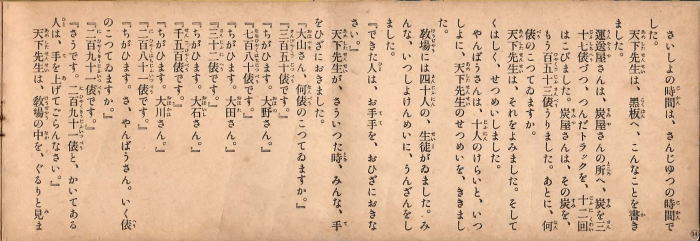 さいしよの時間は、さんじゆつの時間で
した。
天下先生は、黒板へ、こんなことを書き
ました。
運送屋さんは、炭屋さんの所へ、炭を三
十七俵づつ、つんだトラックを、十二回
はこびました。炭屋さんは、その炭を、
もう百五十三俵うりました。あとに、何
俵のこつてゐますか。
天下先生は、それをよみました。そして
くはしく、せつめいしました。
やんばうさんは、十人のけらいと、いつ
しよに、天下先生のせつめいを、ききまし
た。
教場には、四十人の、生徒がゐました。み
んな、いつしよけんめいに、うんざんをし
ました。
『できた人は、お手手を、おひざにおきな
さい。』
天下先生が、さういつた時、みんな、手
をひざにおきました。
『大山さん、何俵のこつてゐますか。』
『三百俵です。』
『ちがひます。大野さん。』
『七百八十俵です。』
『ちがひます。大田さん。』
『三十二俵です。』
『ちがひます。大石さん。』
『千五百俵です。』
『ちがひます。大川さん。』
『二百十一俵です。』
『ちがひます。さ、やんばうさん。いく俵
のこつてゐますか。』
『二百九十一俵です。』
『さうです。二百九十一俵と、かいてある
人は、手を上げてごらんなさい。』
天下先生は、教場の中を、ぐるりと見ま